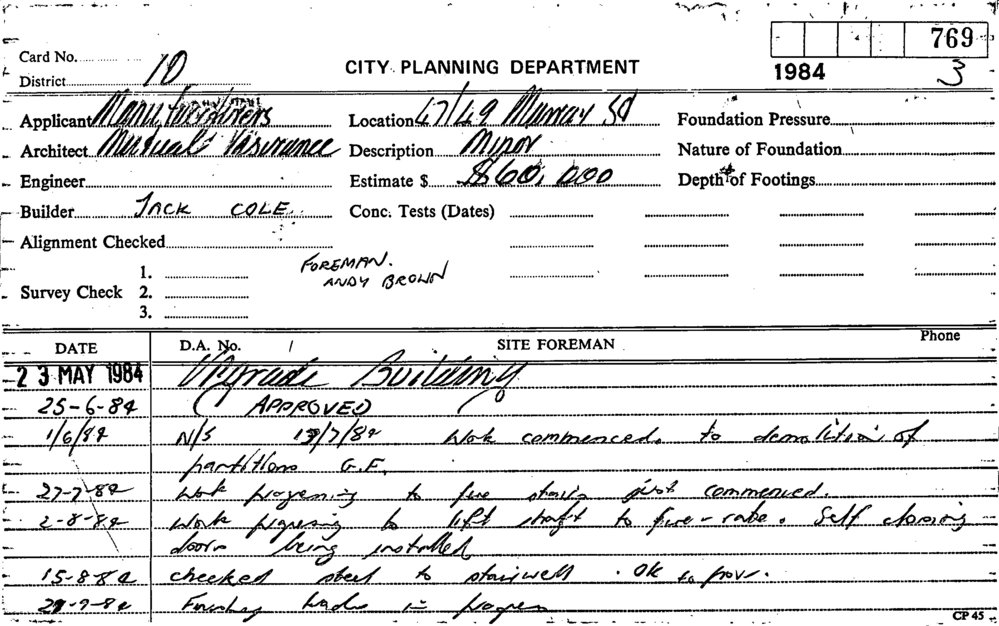 769
Card No.
CITY PLANNING DEPARTMENT
1984 3
District 10
Applicant Manufacturers Location 47/49 Murray St Foundation Pressure
Architect Mutual Insurance Description Minor Nature of Foundation
Engineer Estimate $ $60,000 Depth of Footings
Builder JACK COLE. Conc. Tests (Dates)
Alignment Checked
FOREMAN.
ANDY BROWN
1.
Survey Check 2.
3.
DATE D.A. No. / SITE FOREMAN Phone
23 MAY 1984 Upgrade Building
25-6-84 ( APPROVED )
1/6/84 N/S 13/7/84 Work commenced. to demolition of
partitions G.F.
27-7-84 Work progressing to fire stairs just commenced.
2-8-84 Work progressing to lift shaft to fire-rate. Self closing
doors being installed
15-8-84 checked steel to stairwell. OK to prov.
-9-84 Finishing trades in progress
CP 45